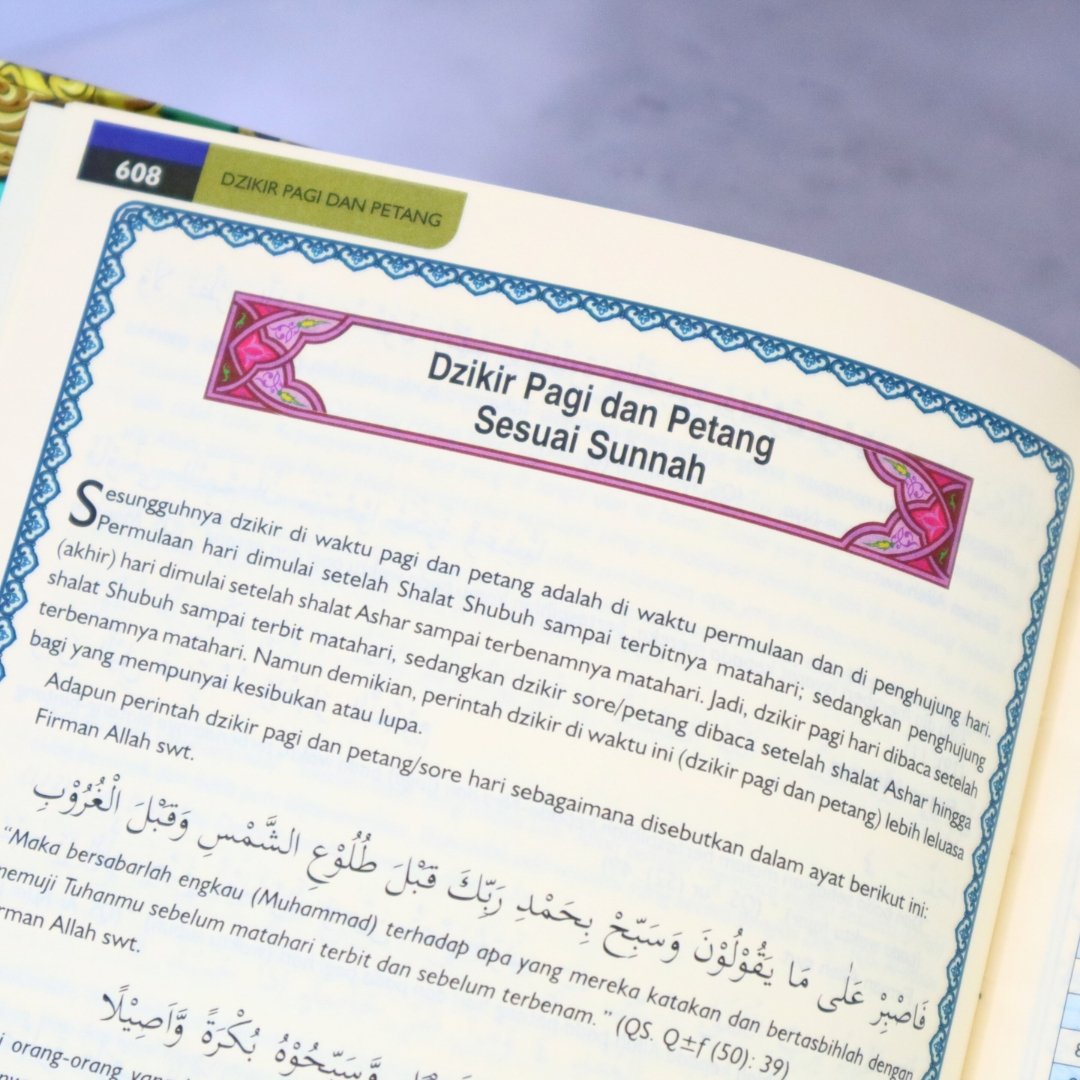 608
DZIKIR PAGI DAN PETANG
Dzikir Pagi dan Petang
Sesuai Sunnah
Sesungguhnya dzikir di waktu pagi dan petang adalah di waktu permulaan dan di penghujung hari.
Permulaan hari dimulai setelah Shalat Shubuh sampai terbitnya matahari; sedangkan penghujung
(akhir) hari dimulai setelah shalat Ashar sampai terbenamnya matahari. Jadi, dzikir pagi hari dibaca setelah
shalat Shubuh sampai terbit matahari, sedangkan dzikir sore/petang dibaca setelah shalat Ashar hingga
terbenamnya matahari. Namun demikian, perintah dzikir di waktu ini (dzikir pagi dan petang) lebih leluasa
bagi yang mempunyai kesibukan atau lupa.
Adapun perintah dzikir pagi dan petang/sore hari sebagaimana disebutkan dalam ayat berikut ini:
Firman Allah swt.
فَاصْبِرْ عَلٰى مَا يَقُوْلُوْنَ وَسَبِّحْ بِحَمْدِ رَبِّكَ قَبْلَ طُلُوْعِ الشَّمْسِ وَقَبْلَ الْغُرُوْبِ
“Maka bersabarlah engkau (Muhammad) terhadap apa yang mereka katakan dan bertasbihlah dengan
memuji Tuhanmu sebelum matahari terbit dan sebelum terbenam.” (QS. Q±f (50): 39)
Firman Allah swt.
وَّسَبِّحُوْهُ بُكْرَةً وَّاَصِيْلًا
orang-orang yang